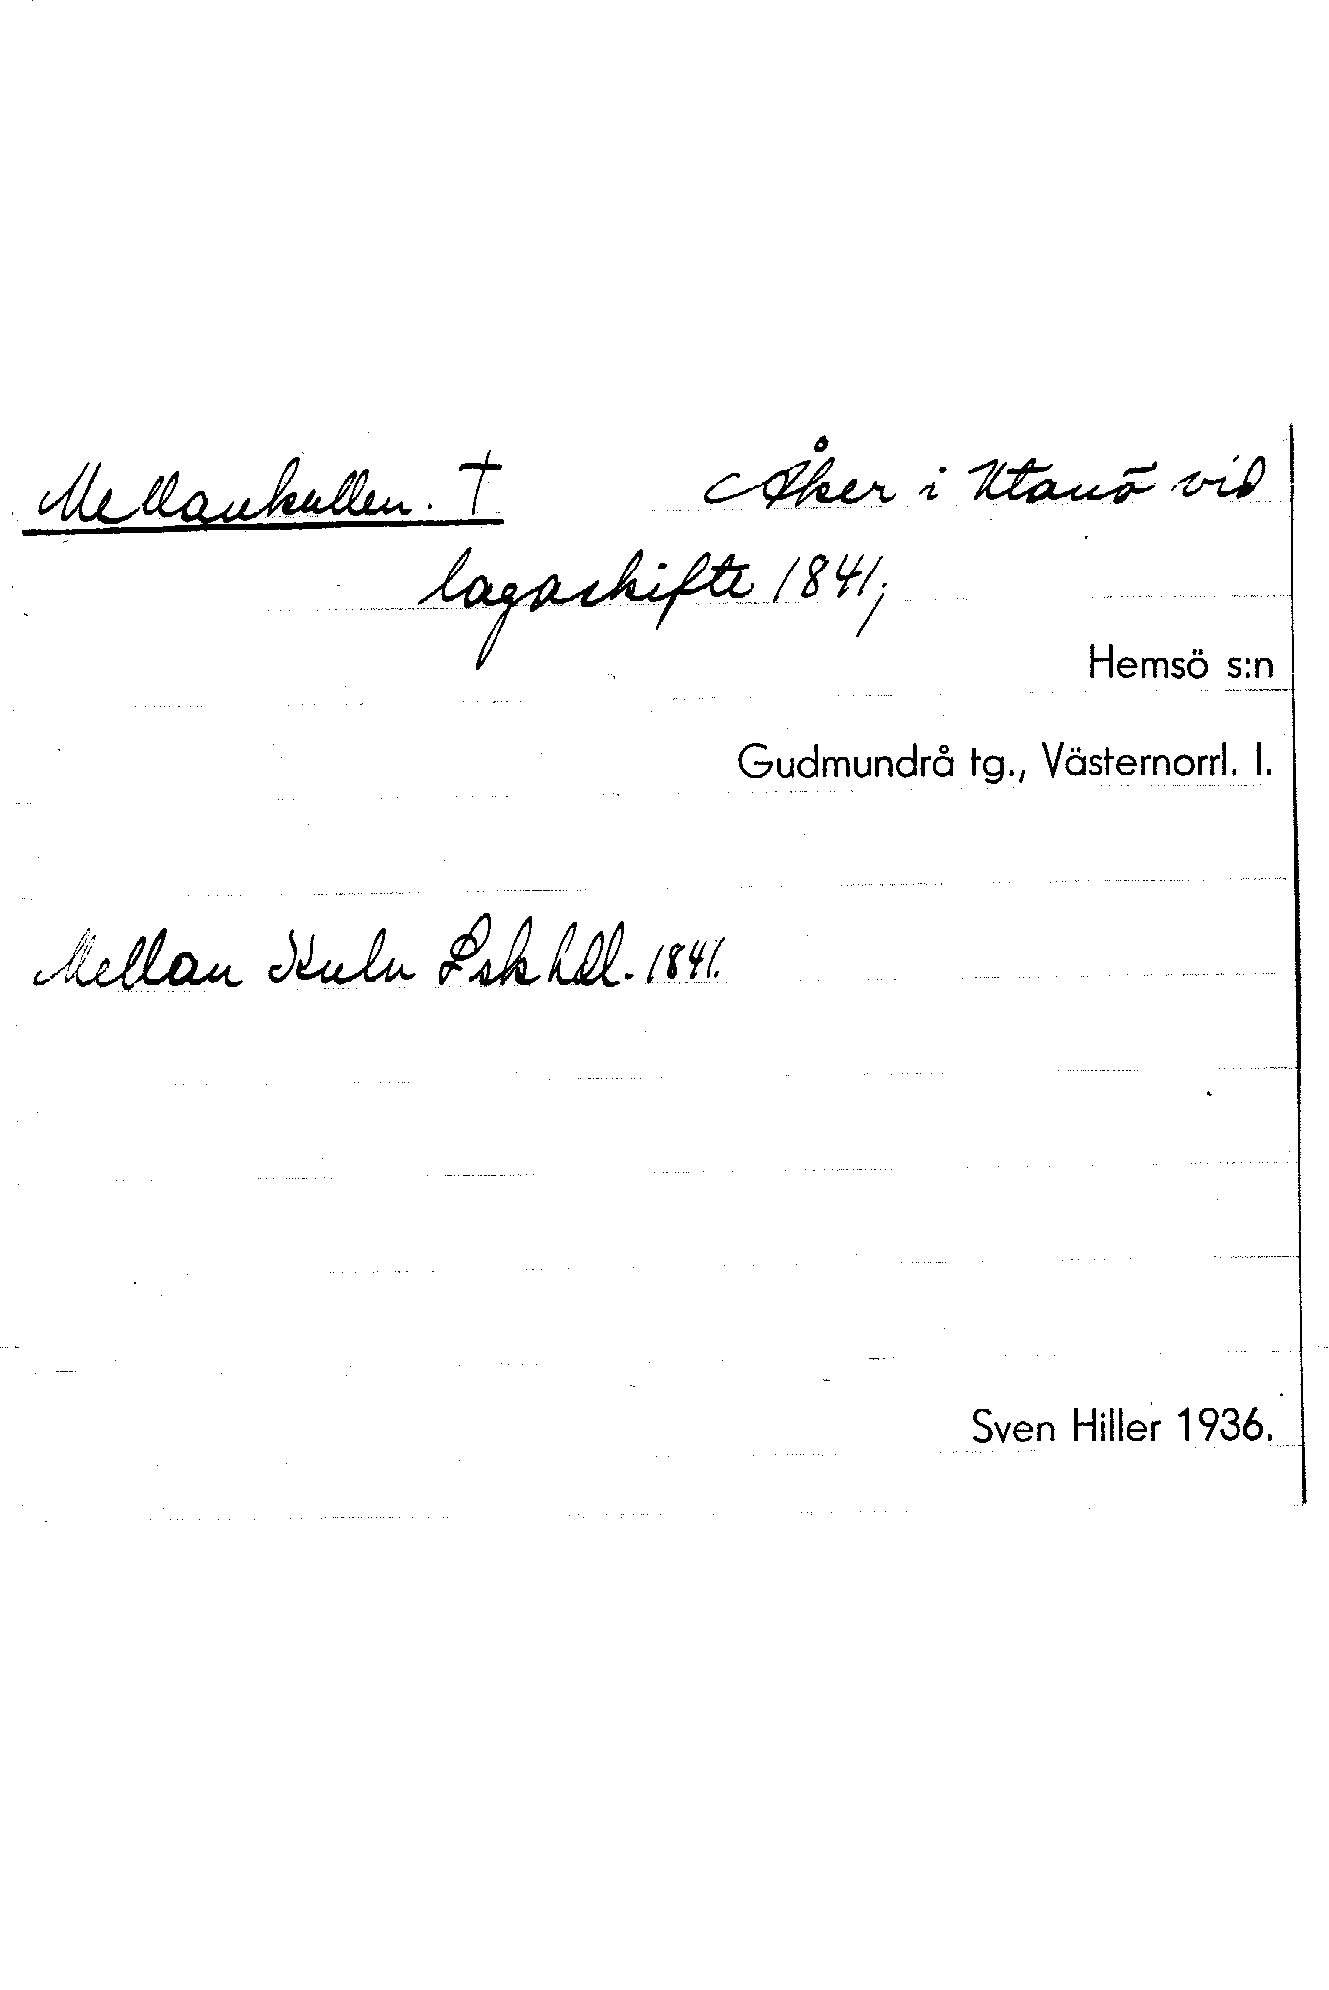 Mellankullen. † Åker i Utanö vid
lagaskifte 1841;
Hemsö s:n
Gudmundrå tg., Västernorrl. l.
Mellan Kuln Lsk hdl. 1841.
Sven Hiller 1936.